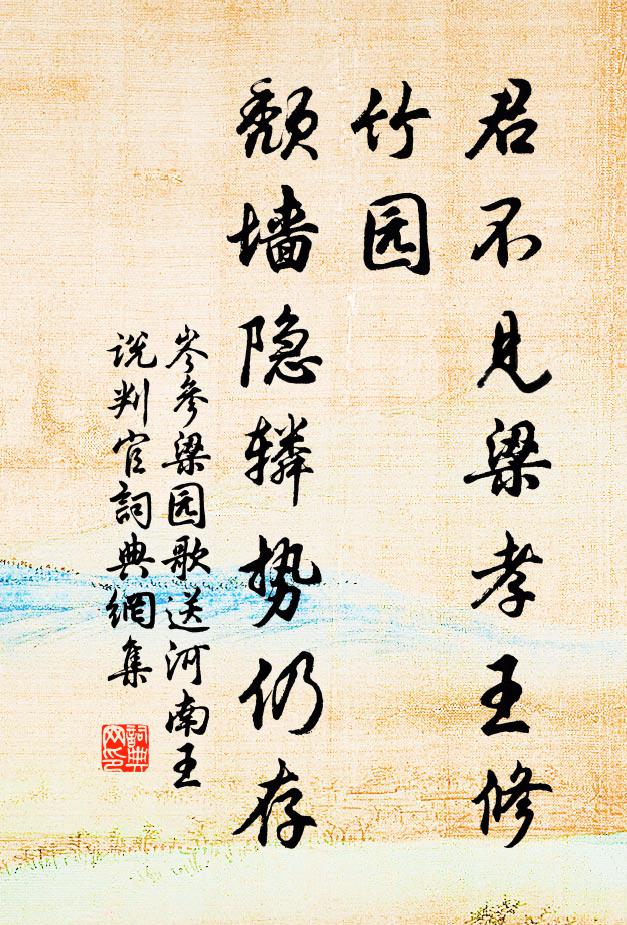 君不见梁孝王修
竹园
颓墙隐辚势仍存
岑参梁园歌送河南王
说判官詞典網集
詞典
网印